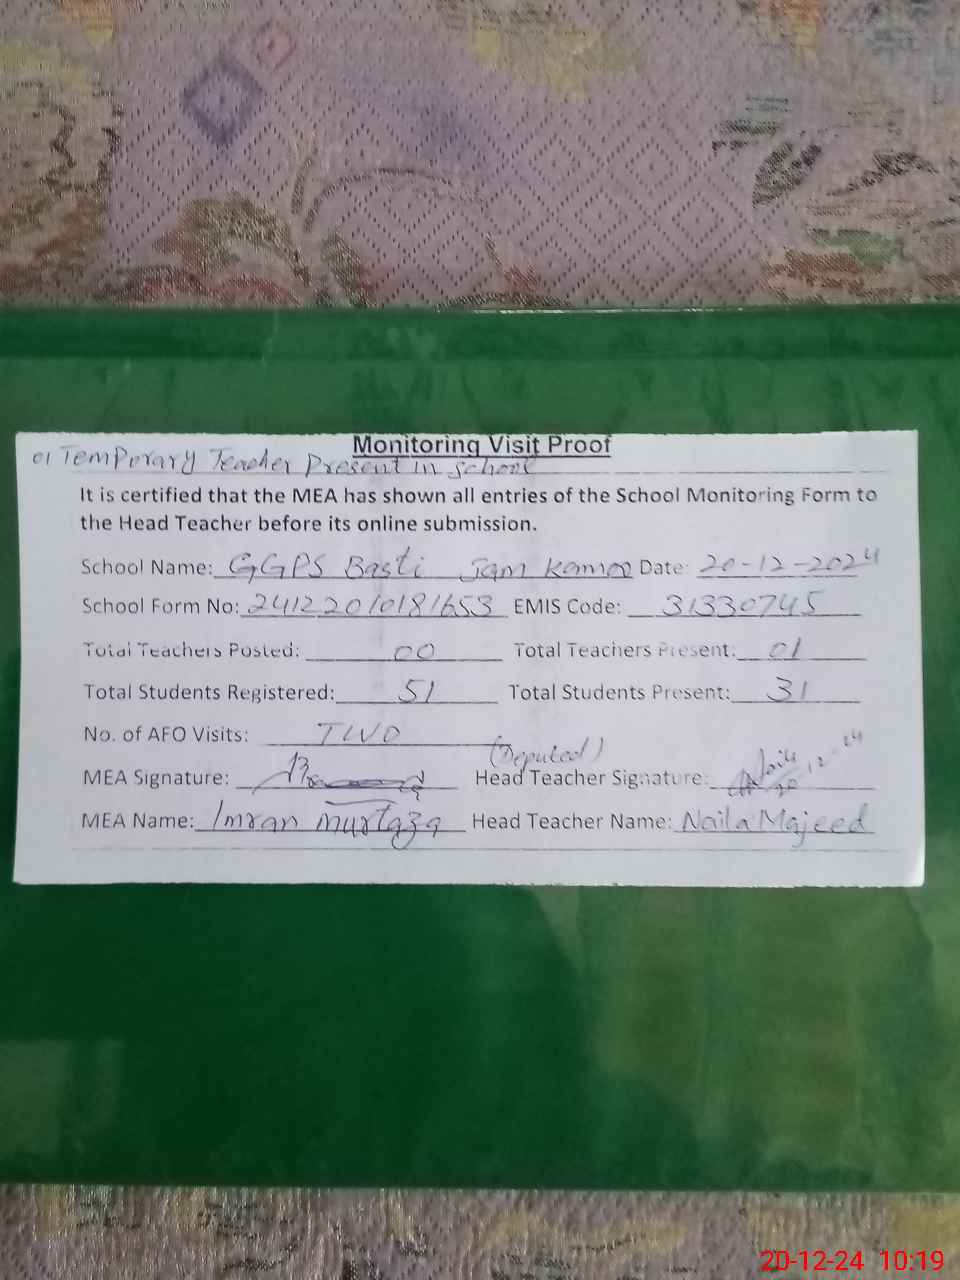 Monitoring Visit Proof
01 Temporary Teacher Present in school
It is certified that the MEA has shown all entries of the School Monitoring Form to
the Head Teacher before its online submission.
School Name: GGPS Basti Jam Kamoo Date: 20-12-2024
School Form No: 24122010181653 EMIS Code: 31330745
Total Teachers Posted: 00 Total Teachers Present: 01
Total Students Registered: 51 Total Students Present: 31
No. of AFO Visits: TWO
(Deputed)
MEA Signature: Head Teacher Signature: Naila 20-12-24
MEA Name: Imran Murtaza Head Teacher Name: Naila Majeed
20-12-24 10:19